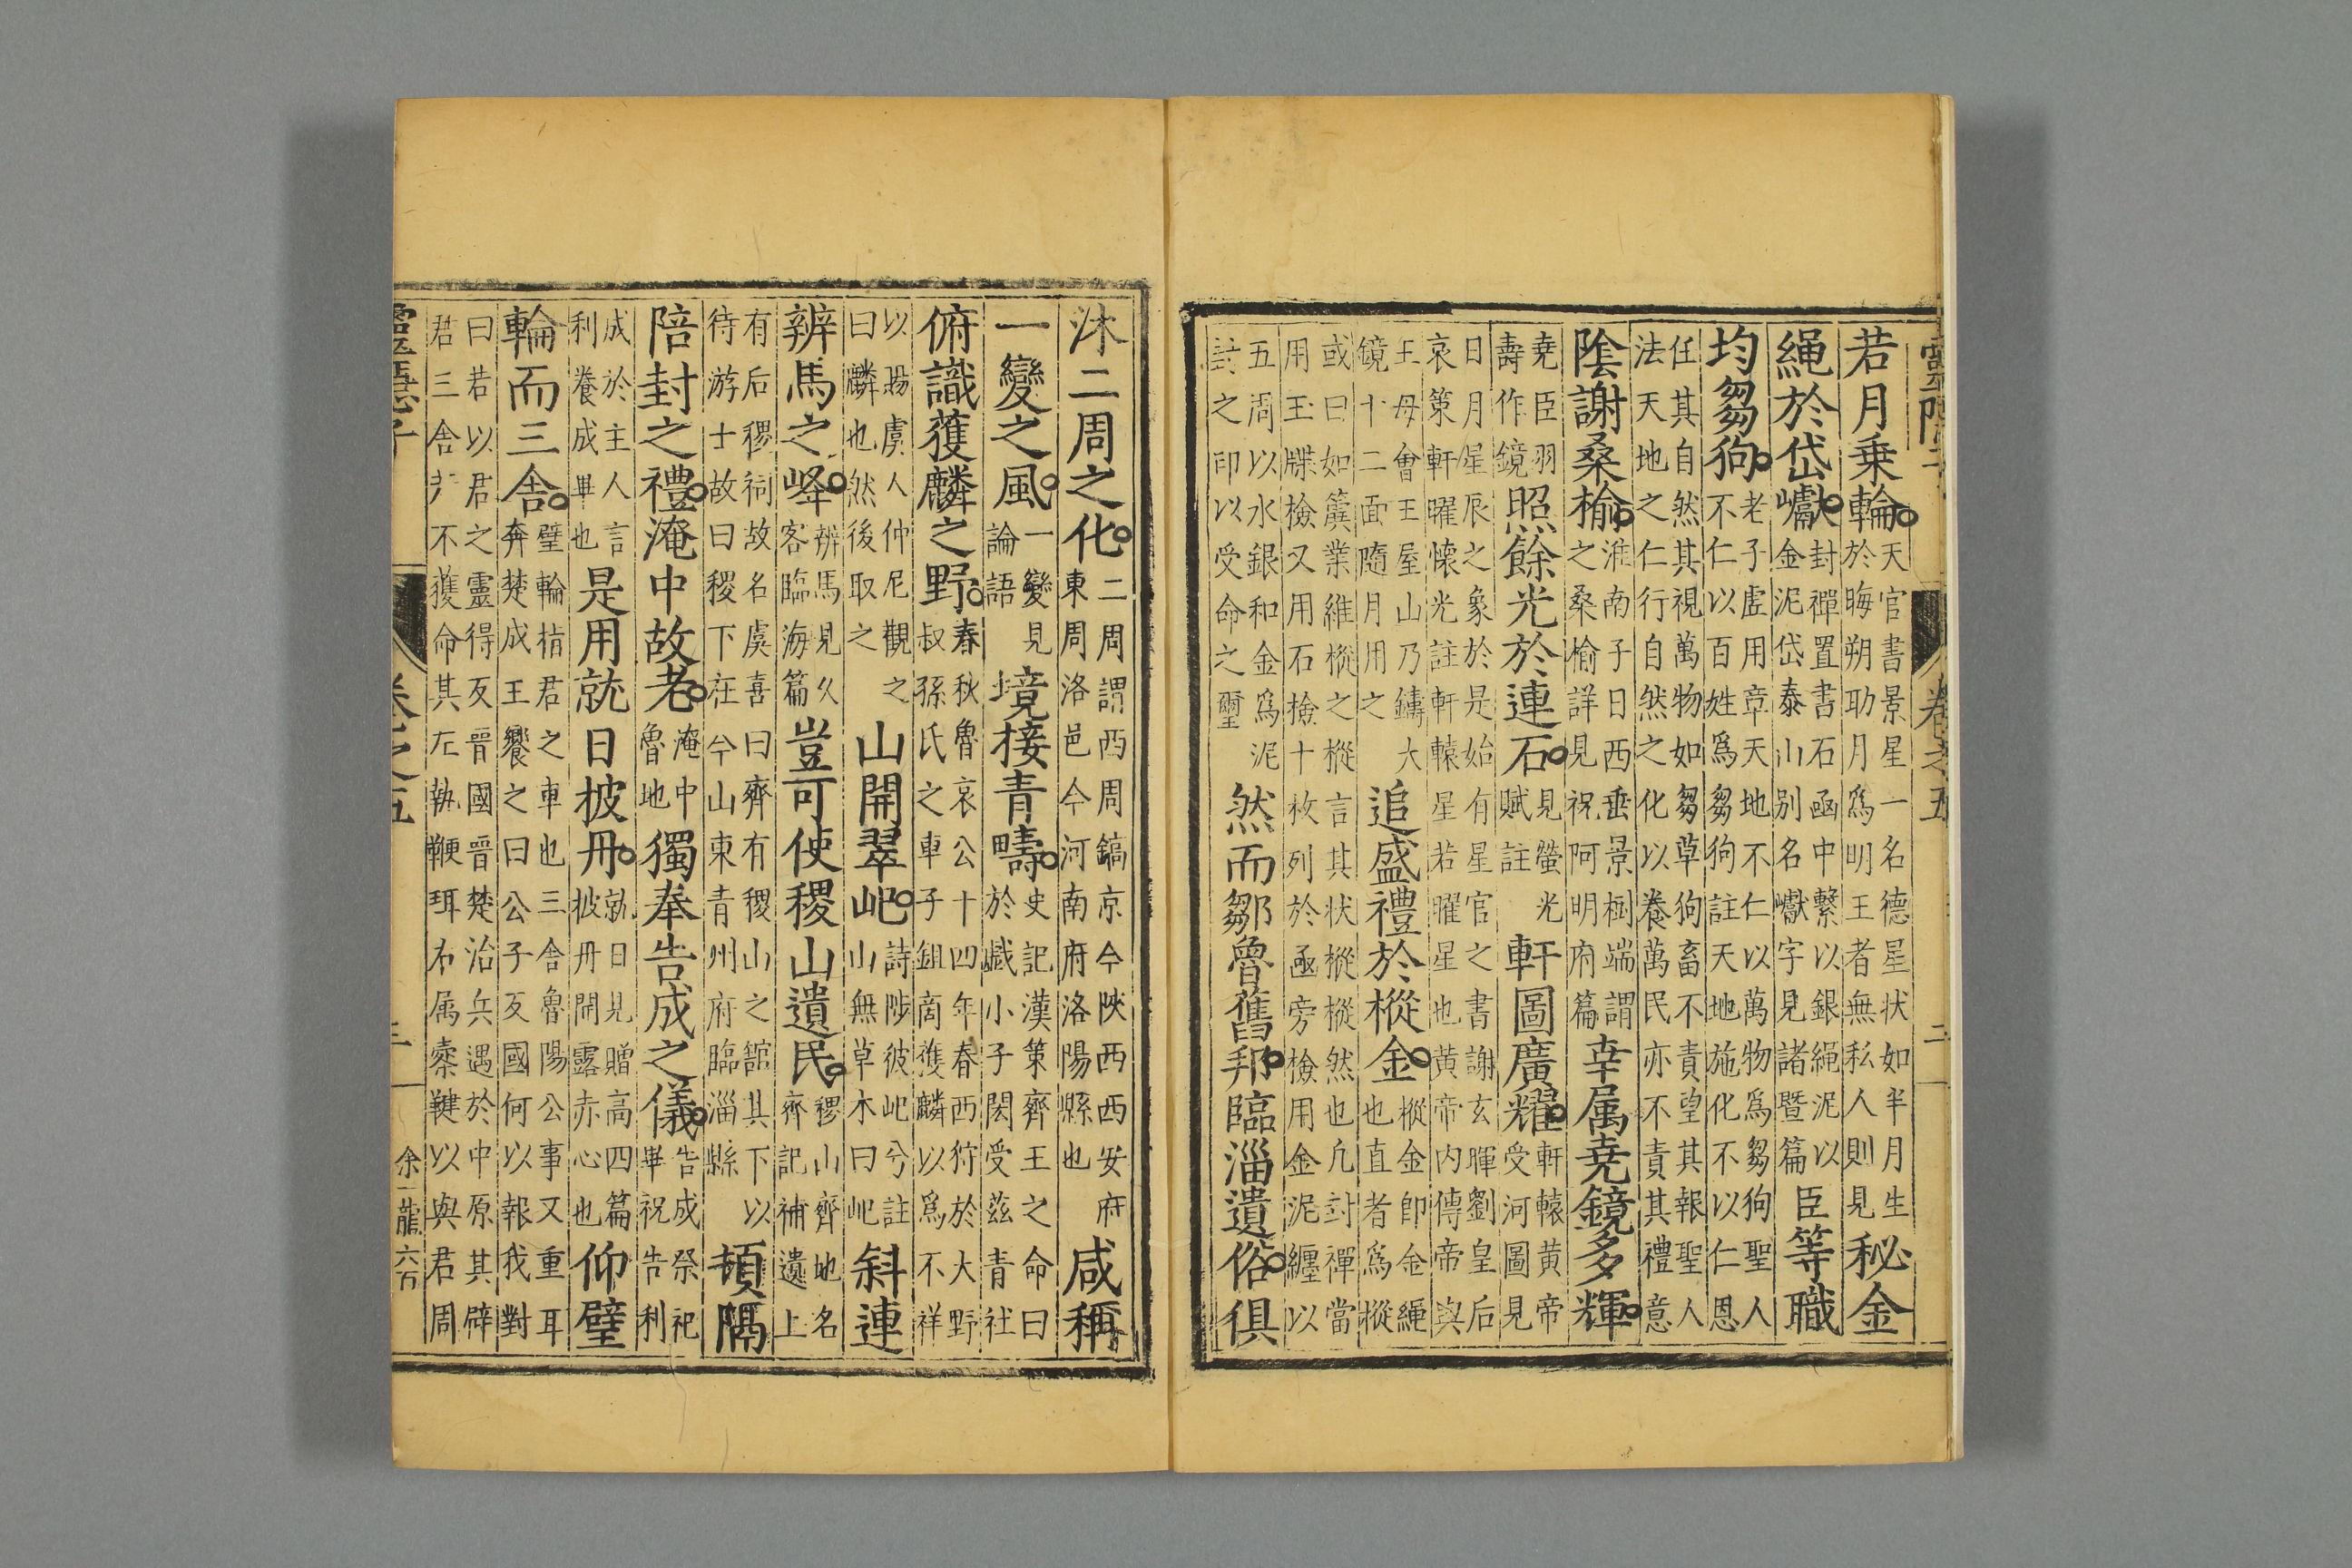 靈隱子 卷之五 二
若月乗輪天官書景星一名德星状如半月生於晦朔助月爲明王者無私人則見秘金
繩於岱巘封禪置書石函中繫以銀繩泥以金泥岱泰山别名巘字見諸暨篇臣等職
均芻狗老子虛用章天地不仁以萬物爲芻狗聖人不仁以百姓爲芻狗註天地施化不以仁恩
任其自然其視萬物如芻草狗畜不責望其報聖人法天地之仁行自然之化以養萬民亦不責其禮意
隂謝桑榆淮南子日西垂景樹端謂之桑榆詳見祝阿明府篇幸属尭鏡多輝
尭臣羽壽作鏡照餘光於連石見螢光賦註軒圖廣耀軒轅黄帝受河圖見
日月星辰之象於是始有星官之書謝玄暉劉皇后哀策軒曜懷光註軒轅星若曜星也黄帝内傳帝與
王母會王屋山乃鑄大鏡十二面隨月用之追盛禮於樅金樅金即金繩也直者爲樅
或曰如簴業維樅之樅言其状樅樅然也凢封禪當用玉牒檢又用石檢十枚列於函旁檢用金泥纒以
五周以水銀和金爲泥封之印以受命之璽然而鄒魯舊邦臨淄遺俗俱
沐二周之化二周謂西周鎬京今陜西西安府東周洛邑今河南府洛陽縣也咸稱
一變之風一變見論語境接青疇史記漢策齊王之命曰於戯小子閎受茲青社
俯識獲麟之野春秋魯哀公十四年春西狩於大野叔孫氏之車子鉏商獲麟以爲不祥
以賜虞人仲尼觀之曰麟也然後取之山開翠屺詩陟彼屺兮註山無草木曰屺斜連
辨馬之峰辨馬見久客臨海篇豈可使稷山遺民稷山齊地名齊記補遺上
有后稷祠故名虞喜曰齊有稷山之舘其下以待游士故曰稷下在今山東青州府臨淄縣頓隔
陪封之禮淹中故老淹中魯地獨奉告成之儀告成祭祀畢祝告利
成於主人言利養成畢也是用就日披丹就日見贈高四篇披丹開露赤心也仰璧
輪而三舎璧輪指君之車也三舎魯陽公事又重耳奔楚成王饗之曰公子反國何以報我對
曰若以君之靈得反晋國晋楚治兵遇於中原其辟君三舎若不獲命其左執鞭珥右属櫜鞬以與君周
靈隱子 卷之五 三 余一龍 六百